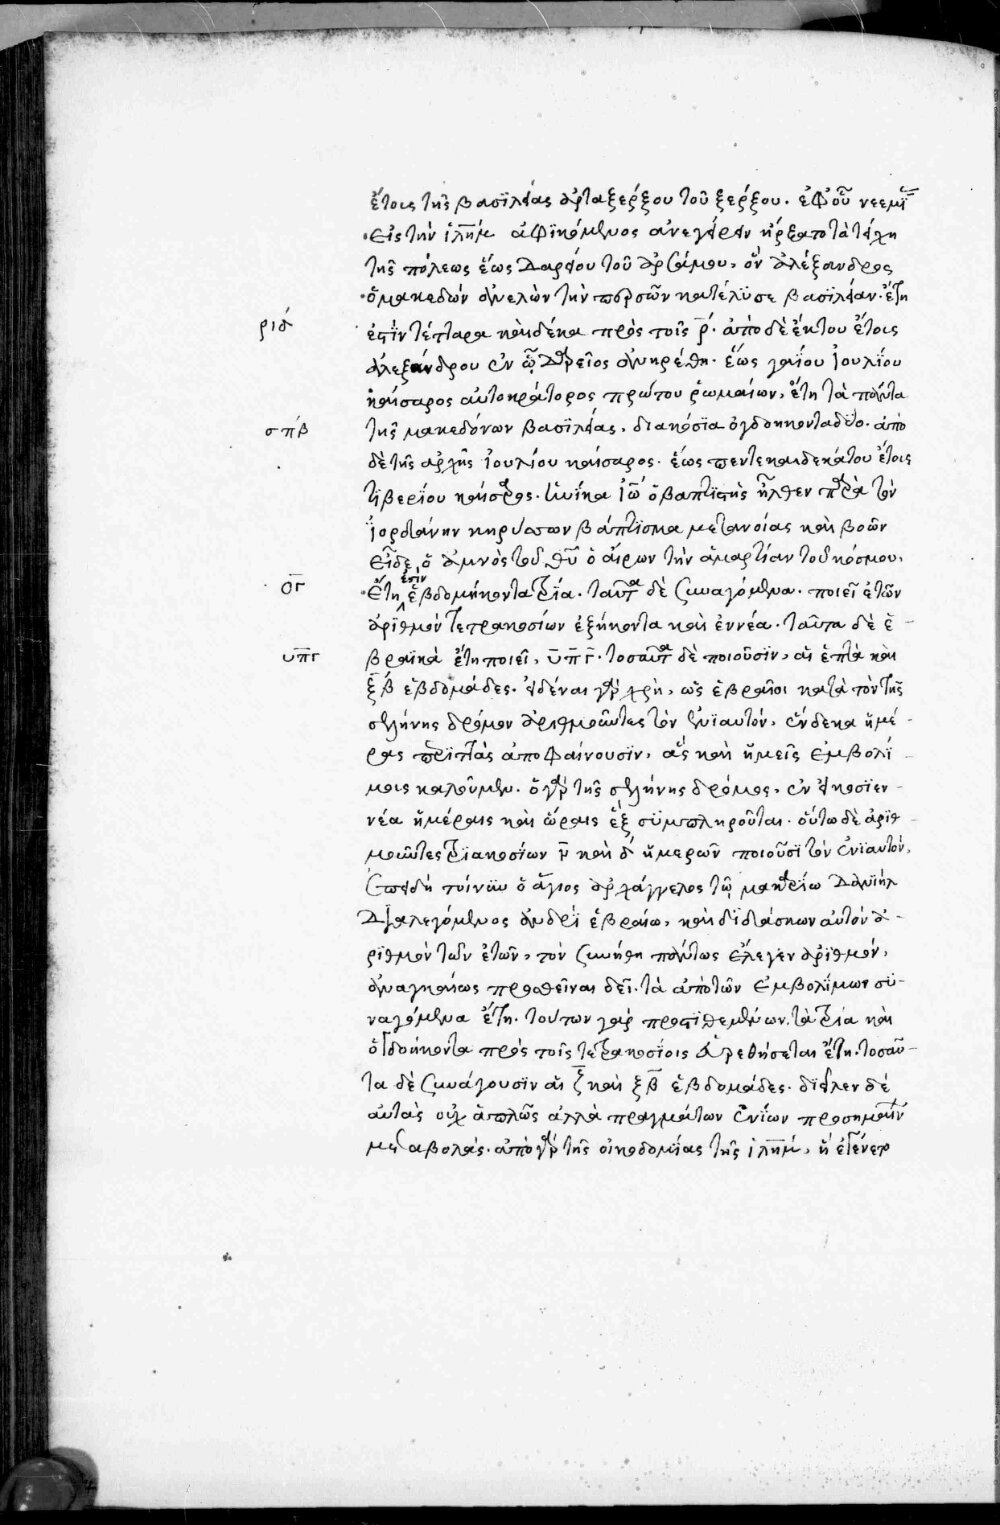 ἔτους τῆς βασϊλείας ἀρταξέρξου τοῦ ξέρξου. ἐφ' οὗ νεεμΐ
εἰς τὴν ἱλὴμ ἀφϊκόμενος ἀνεγείρειν ἤρξατο τὰ τείχη
τῆς πόλεως ἕως δαρείου τοῦ ἀρσάμου, ὃν ἀλέξανδρος
ὁ μακεδὼν ἀνελὼν τὴν περσῶν κατέλϋσε βασϊλείαν. ἔτη
ριδ ἐστὶν τέσσαρα καὶ δέκα πρὸς τοῖς ρ. ἀπὸ δὲ ἕκτου ἔτους
ἀλεξάνδρου ἐν ᾧ δαρεῖος ἀνηρέθη. ἕως γαΐου ἰουλΐου
καίσαρος αὐτοκράτορος πρώτου ῥωμαίων, ἔτη τὰ πάντα
σπβ τῆς μακεδόνων βασϊλείας, διακόσϊα ὀγδοηκονταδύο. ἀπὸ
δὲ τῆς ἀρχῆς ἰουλΐου καίσαρος. ἕως πεντεκαιδεκάτου ἔτους
τϊβερΐου καίσαρος. ἡνΐκα ἰω ὁ βαπτϊστὴς ἦλθεν παρὰ τὸν
ἰορδάνην κηρύσσων βάπτϊσμα μετανοίας καὶ βοῶν
εἶδε, ὁ ἀμνὸς τοῦ θυ ὁ αἴρων τὴν ἁμαρτΐαν τοῦ κόσμου,
ογ ἔτη ἐστὶν ἑβδομήκοντα τρΐα. ταῦτα δὲ συναγόμενα. ποιεῖ ἐτῶν
ἀρϊθμὸν τετρακοσίων ἑξήκοντα καὶ ἐννέα. ταῦτα δὲ ἑ-
υπγ βραϊκὰ ἔτη ποιεῖ, υπγ. τοσαῦτα δὲ ποιοῦσϊν, αἱ ἑπτὰ καὶ
ξβ ἑβδομάδες. εἰδέναι γὰρ χρὴ, ὡς ἑβραῖοι κατὰ τὸν τῆς
σελήνης δρόμον ἀριθμοῦντες τὸν ἐνϊαυτὸν, ἕνδεκα ἡμέ-
ρας περϊττὰς ἀποφαίνουσϊν, ἃς καὶ ἡμεῖς ἐμβολΐ-
μους καλοῦμεν. ὁ γὰρ τῆς σελήνης δρόμος, ἐν εἴκοσϊεν-
νέα ἡμέραις καὶ ὥραις ἓξ συμπληροῦται. οὕτω δὲ ἀρϊθ-
μοῦντες τριακοσίων ν καὶ δ ἡμερῶν ποιοῦσϊ τὸν ἐνϊαυτὸν,
ἐπειδὴ τοίνυν ὁ ἅγιος ἀρχάγγελος τῷ μακαρΐω δανϊὴλ
διαλεγόμενος ἀνδρὶ ἑβραίω, καὶ δϊδάσκων αὐτὸν ἀ-
ρϊθμὸν τῶν ἐτῶν, τὸν συνήθη πάντως ἔλεγεν ἀρϊθμὸν,
ἀναγκαίως προσθεῖναι δεῖ. τὰ ἀπὸ τῶν ἐμβολΐμων συ-
ναγόμενα ἔτη. τούτων γὰρ προστϊθεμένων, τὰ τρΐα καὶ
ὀγδοήκοντα πρὸς τοῖς τετρακοσΐοις εὑρεθήσεται ἔτη. τοσαῦ-
τα δὲ συνάγουσϊν αἱ ζ καὶ ξβ ἑβδομάδες. δϊεῖλεν δὲ
αὐτὰς οὐχ ἁπλῶς ἀλλὰ πραγμάτων ἐνΐων προσημαίνων
μεταβολάς. ἀπὸ γὰρ τῆς οἰκοδομΐας τῆς ἱλὴμ, ἣ ἐγένετο